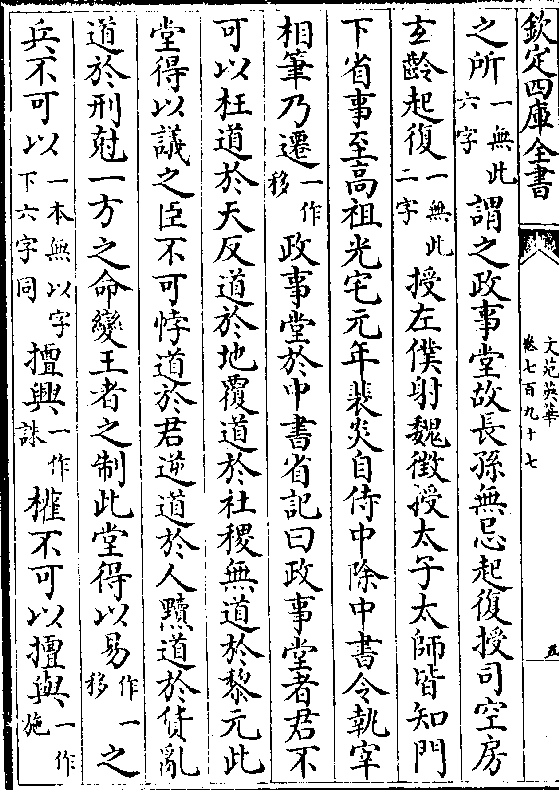 欽定四庫全書
文苑英華
卷七百九十七
五
之所一無此六字謂之政事堂故長孫無忌起復授司空房
玄齡起復一無此二字授左僕射魏徵授太子太師皆知門
下省事至高祖光宅元年裴炎自侍中除中書令執宰
相筆乃遷一作移政事堂於中書省記曰政事堂者君不
可以枉道於天反道於地覆道於社稷無道於黎元此
堂得以議之臣不可悖道於君逆道於人黷道於貨亂
道於刑尅一方之命變王者之制此堂得以易一作移之
兵不可以一本無以字下六字同擅興一作誅權不可以擅與一作施